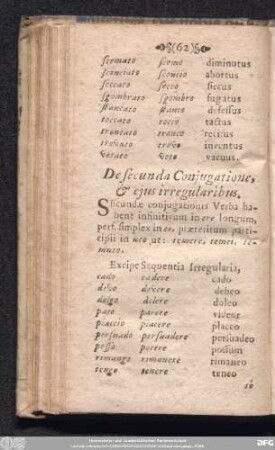 (62)
scemato scemo diminutus
sconciato sconcio abortus
seccato secco siccus
sgombrato sgombro fugatus
stancato stanco defessus
toccato tocco tactus
troncato tronco recisus
trovato trovo inventus
votato voto vacuus.
De secunda Conjugatione,
& ejus irregularibus.
Secundæ conjugationis Verba ha-
bent infinitivum in ere longum,
perf. simplex in ei, præteritum parti-
cipii in uto ut: temere, temei, te-
muto.
Excipe Sequentia Irregularia,
cado cadere cado
devo devere debeo
dolgo dolere doleo
pajo parere videor
piaccio piacere placeo
persuado persuadere persuadeo
posso potere possum
rimango rimanere rimaneo
tengo tenere teneo